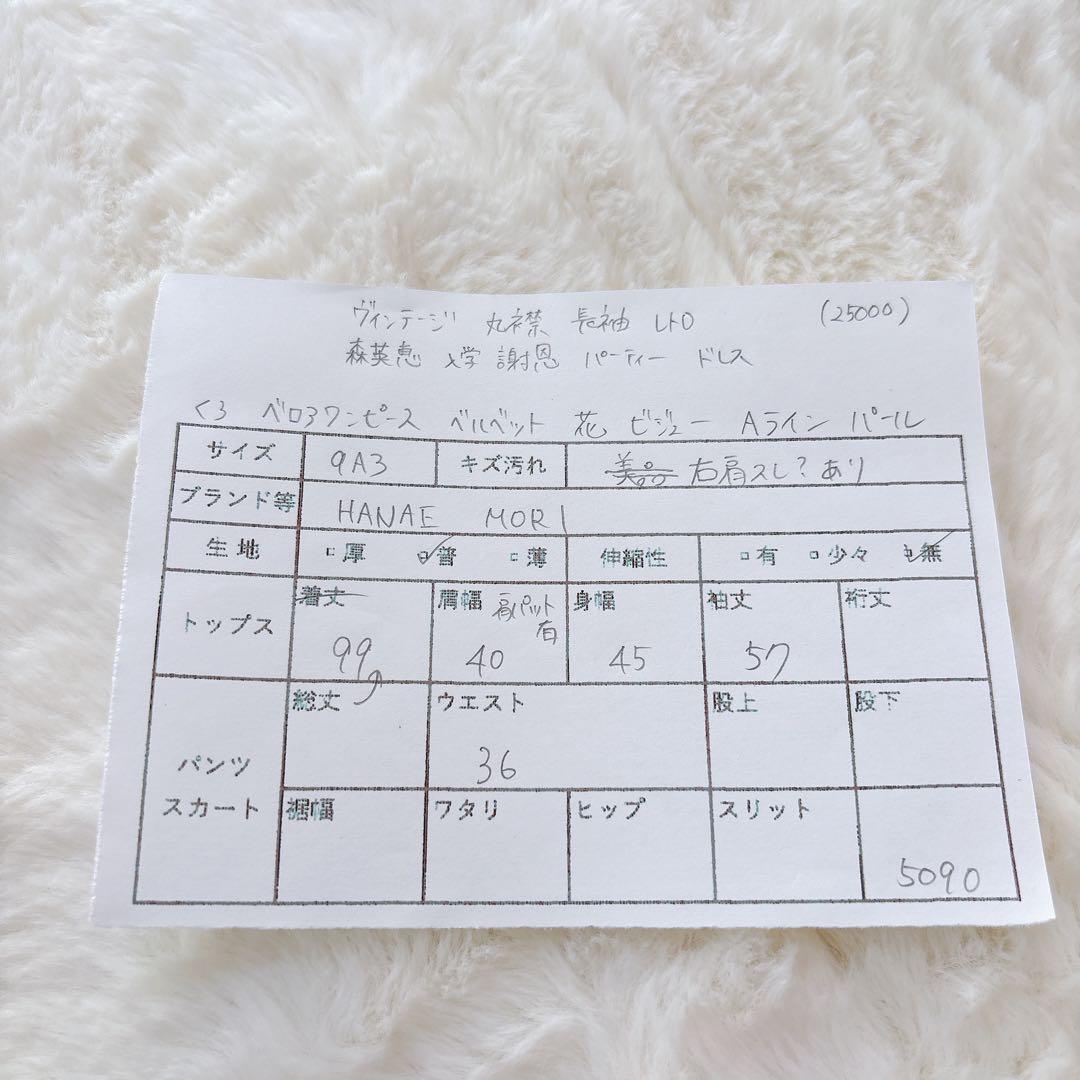 ヴィンテージ 丸襟 長袖 レトロ (25000)
森英恵 入学 謝恩 パーティー ドレス
くろ ベロアワンピース ベルベット 花 ビジュー Aライン パール
サイズ 9A3 キズ汚れ 美品 右肩スレ?あり
ブランド等 HANAE MORI
生地 厚 普 薄 伸縮性 有 少々 無
トップス 着丈 99 肩幅 肩パット有 40 身幅 45 袖丈 57 裄丈
パンツ スカート 総丈 ウエスト 36 股上 股下
裾幅 ワタリ ヒップ スリット 5090